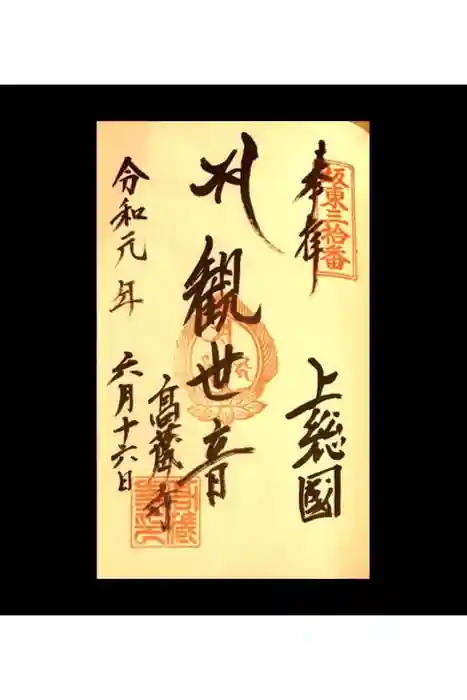 奉拝
坂東三拾番
上総國
観世音
髙蔵寺
令和元年
六月十六日